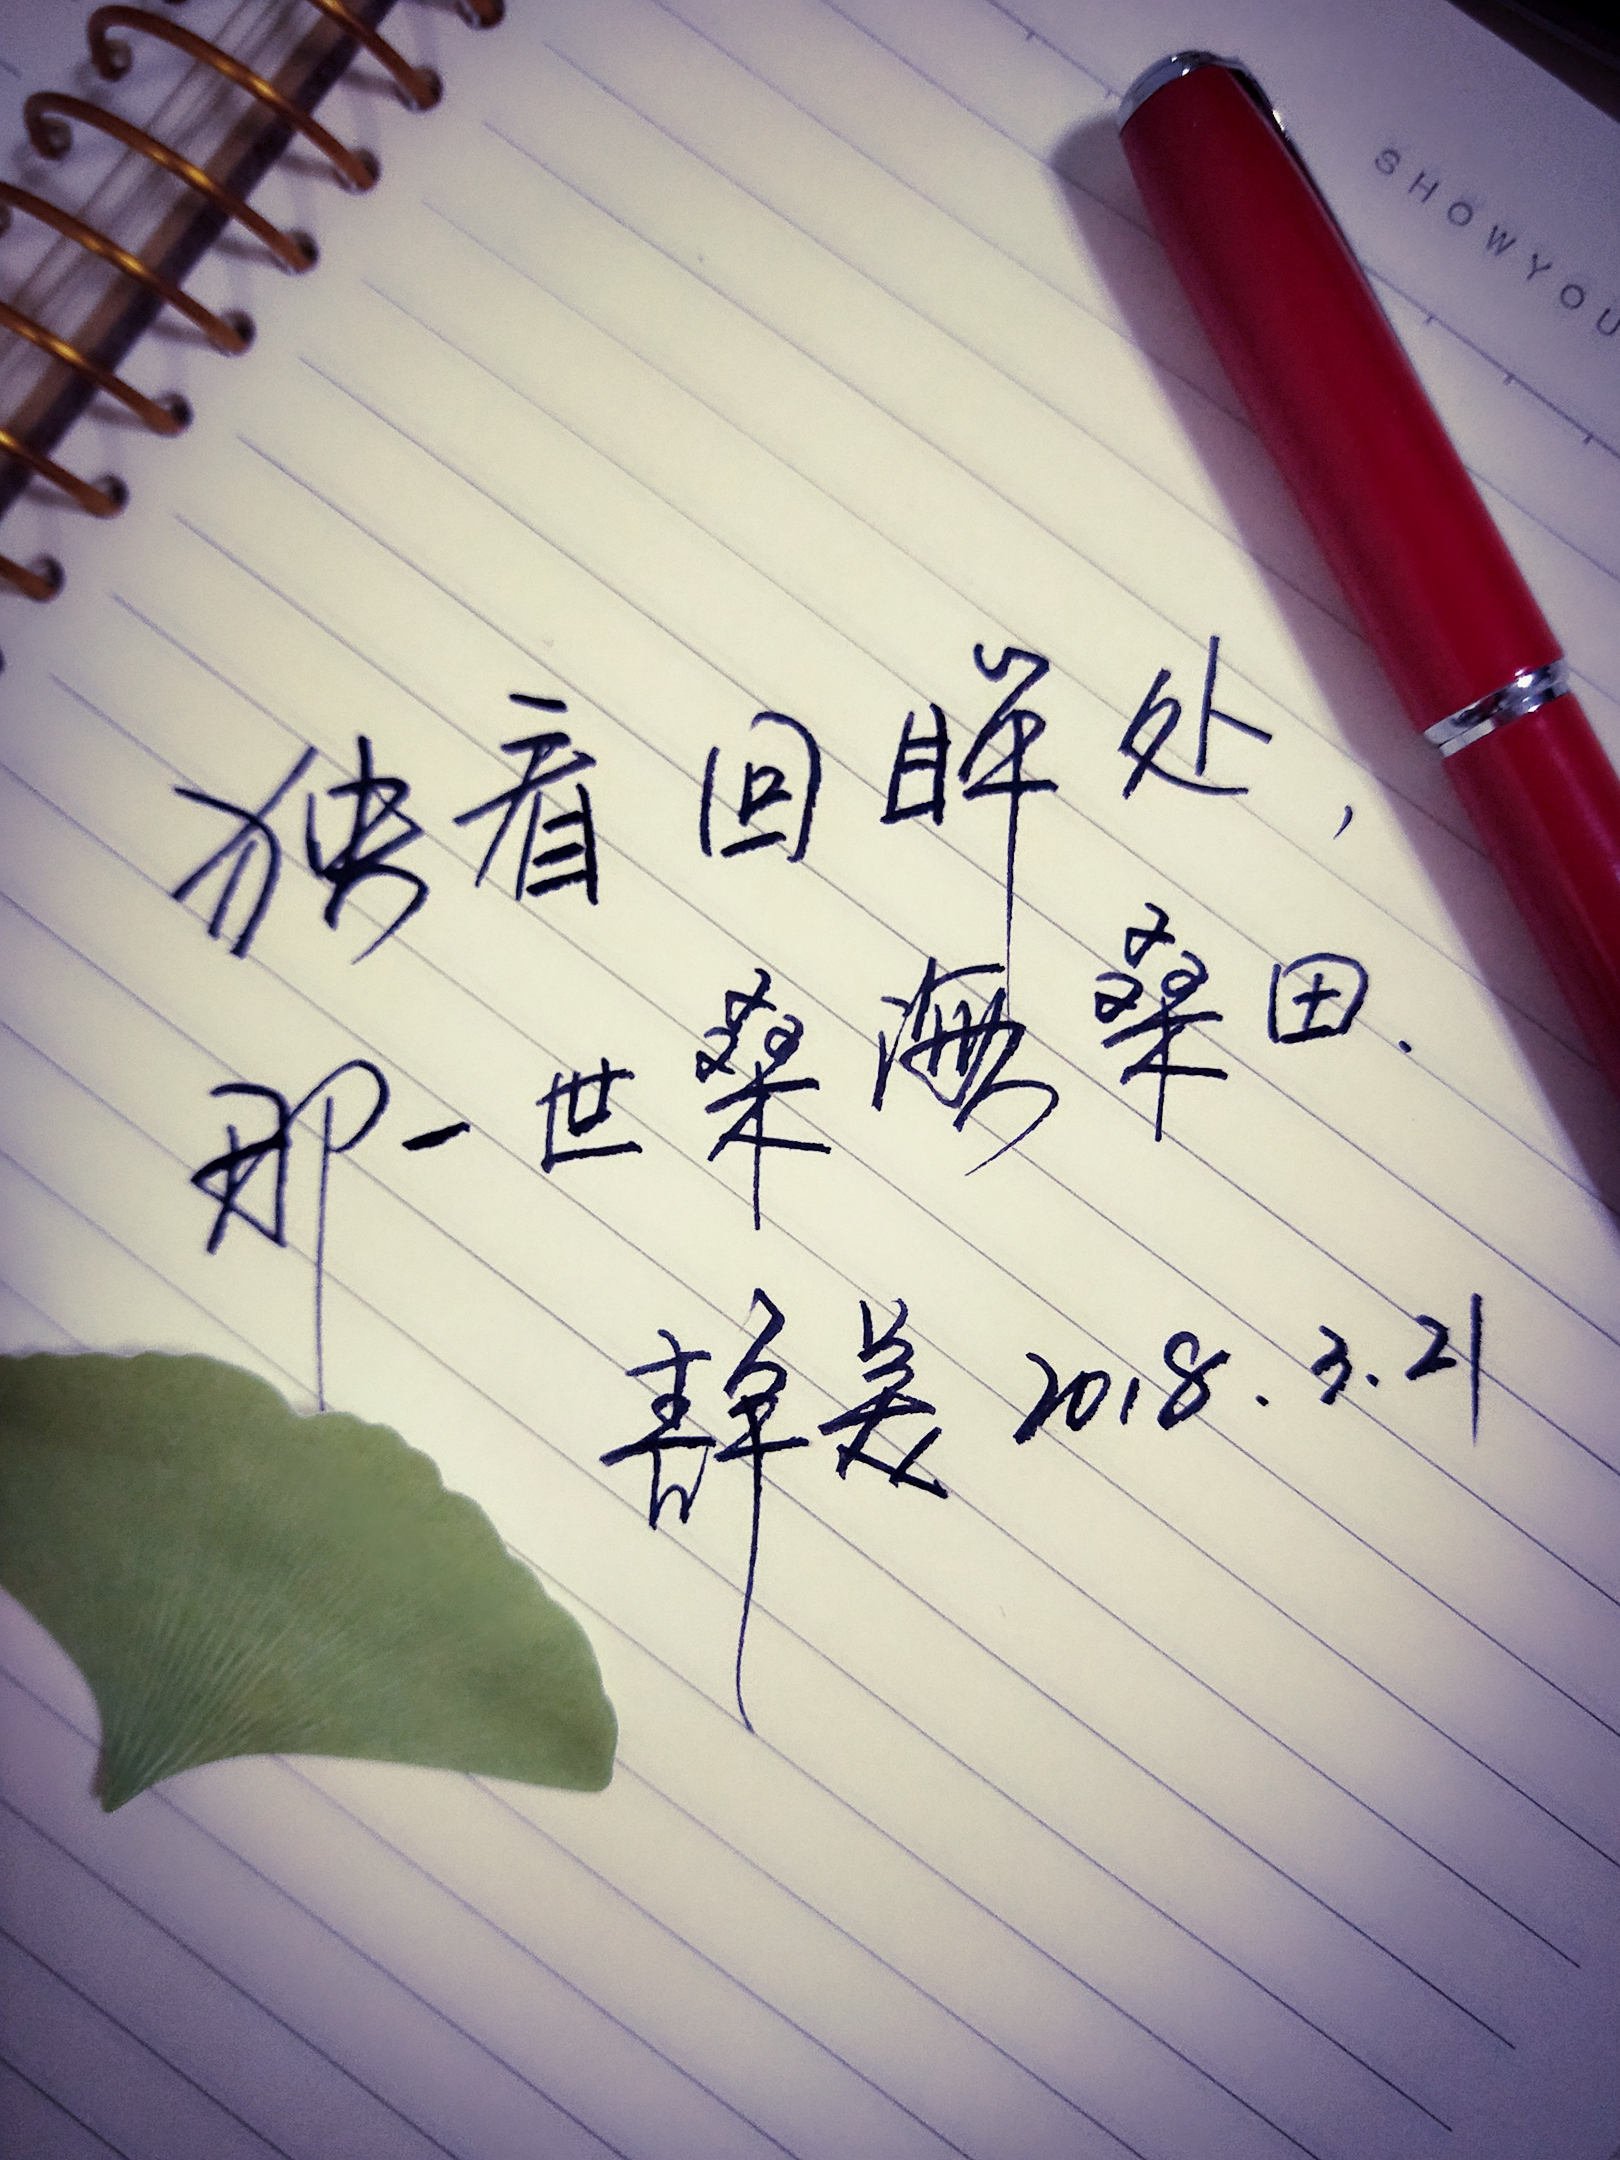 SHOWYOU
独看回眸处,
那一世桑海桑田.
静美 2018.3.21